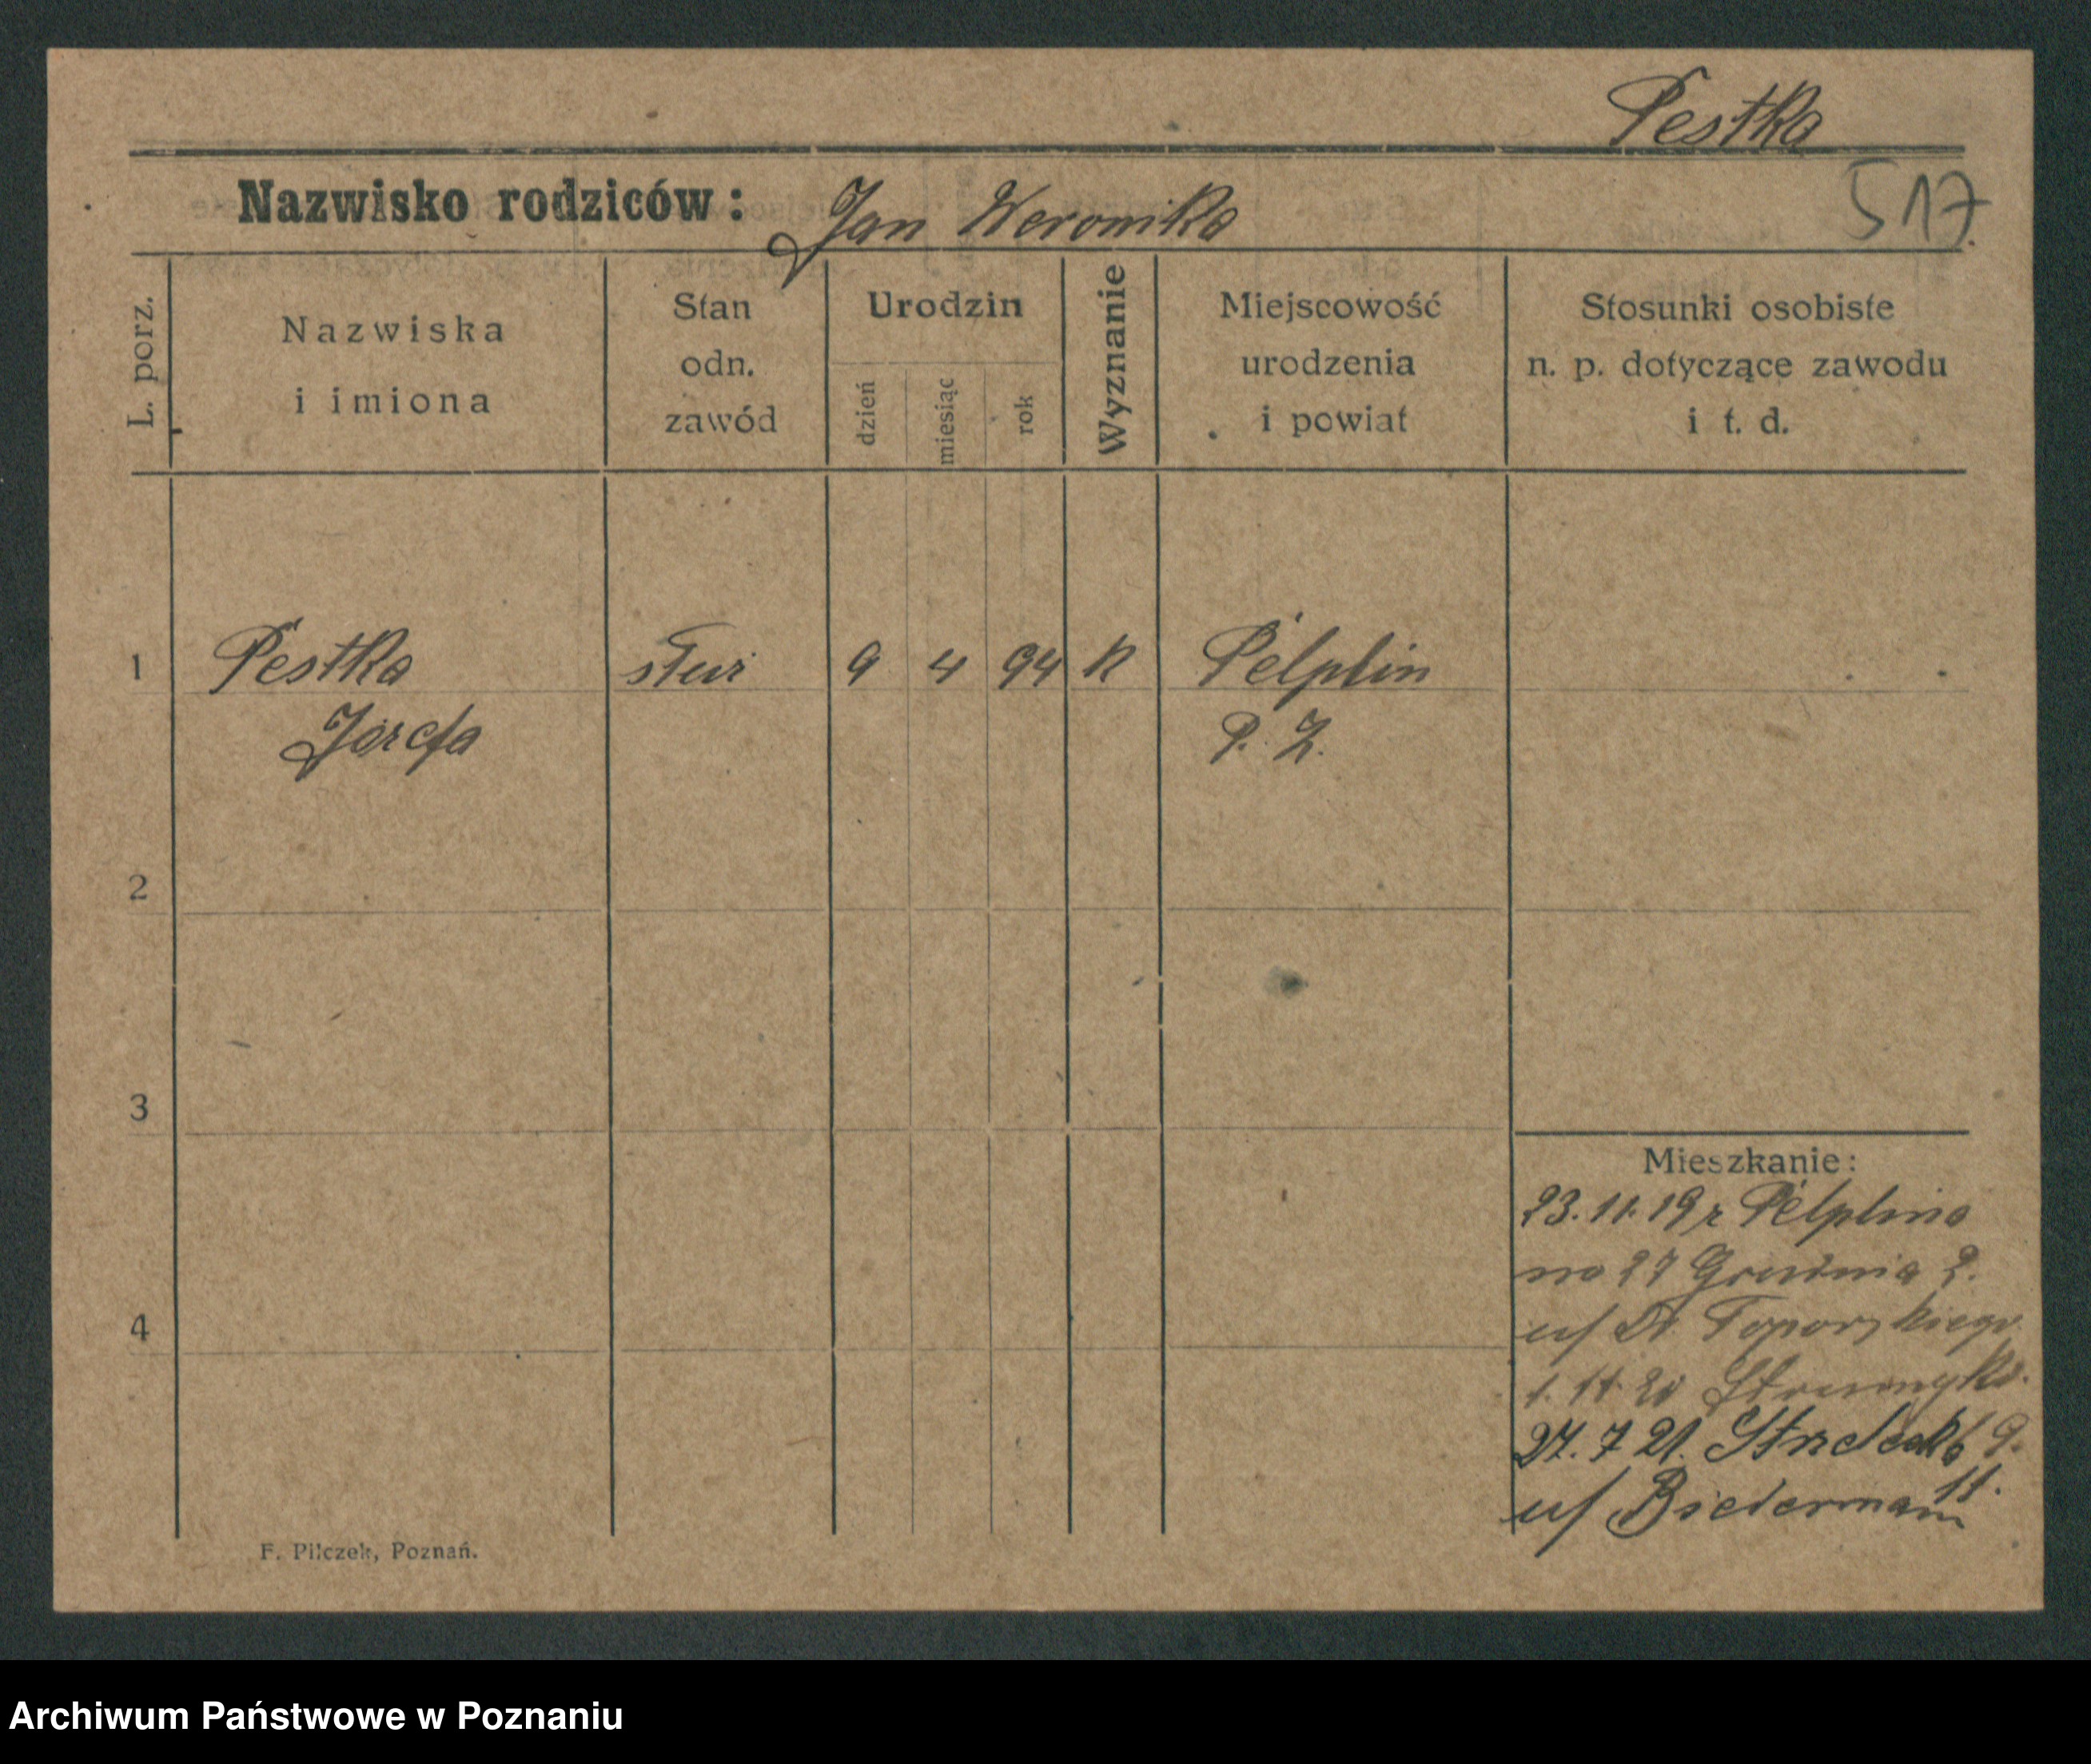 Pestka
517.
Nazwisko rodziców: Jan Weronika
L. porz.
Nazwiska
i imiona
Stan
odn.
zawód
Urodzin
dzień
miesiąc
rok
Wyznanie
Miejscowość
urodzenia
i powiat
Stosunki osobiste
n. p. dotyczące zawodu
i t. d.
1 Pestka 9 4 94 K Pelplin
Józefa
2
3
4
Mieszkanie:
23.11.19 z Pelplina
na 27 Grudnia 2.
u/ Dr Toporskiego
1.11.20
27. 7 21. Strzelecka 9.
11.
u/ Biederman
F. Pilczek, Poznań.
Archiwum Państwowe w Poznaniu